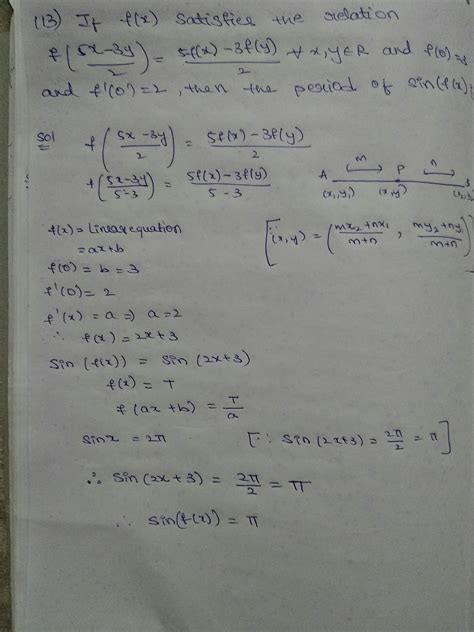 (13) If f(x) satisfies the relation
f((5x-3y)/2) = (5f(x)-3f(y))/2 ∀ x,y∈R and f(0)=3
and f'(0)=2, then the period of sin(f(x)
Sol f((5x-3y)/2) = (5f(x)-3f(y))/2
f((5x-3y)/(5-3)) = (5f(x)-3f(y))/(5-3)
m n
A P
(x,y,) (x,y)
f(x) = Linear equation
= ax+b
[∵ (x,y) = ((mx₂+nx₁)/(m+n), (my₂+ny₁)/(m+n))]
f(0) = b = 3
f'(0) = 2
f'(x) = a ⇒ a=2
∴ f(x) = 2x+3
sin(f(x)) = sin(2x+3)
f(x) = T
f(ax+b) = T/a
sinx = 2π [∵ sin(2x+3) = 2π/2 = π]
∴ sin(2x+3) = 2π/2 = π
∴ sin(f(x)) = π